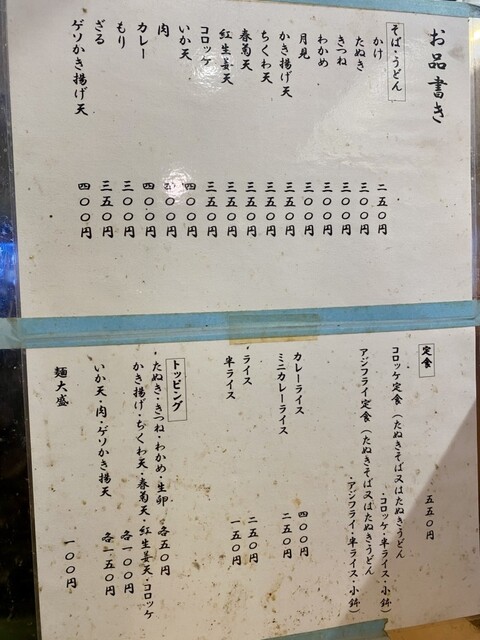 お品書き
そば・うどん
かけ 二五〇円
たぬき 三〇〇円
きつね 三〇〇円
わかめ 三〇〇円
月見 三〇〇円
かき揚げ天 三五〇円
ちくわ天 三五〇円
春菊天 三五〇円
紅生姜天 三五〇円
コロッケ 三五〇円
いか天 四〇〇円
肉 四〇〇円
カレー 四〇〇円
もり 三〇〇円
ざる 三五〇円
ゲソかき揚げ天 四〇〇円
定食 五五〇円
コロッケ定食(たぬきそば又はたぬきうどん
・コロッケ・半ライス・小鉢)
アジフライ定食(たぬきそば又はたぬきうどん
・アジフライ・半ライス・小鉢)
カレーライス 四〇〇円
ミニカレーライス 二五〇円
・ライス 二五〇円
半ライス 一五〇円
トッピング
・たぬき・きつね・わかめ・生卵 各五〇円
かき揚げ・ちくわ天・春菊天・紅生姜天・コロッケ 各一〇〇円
いか天・肉・ゲソかき揚天 各一五〇円
麺大盛 一〇〇円